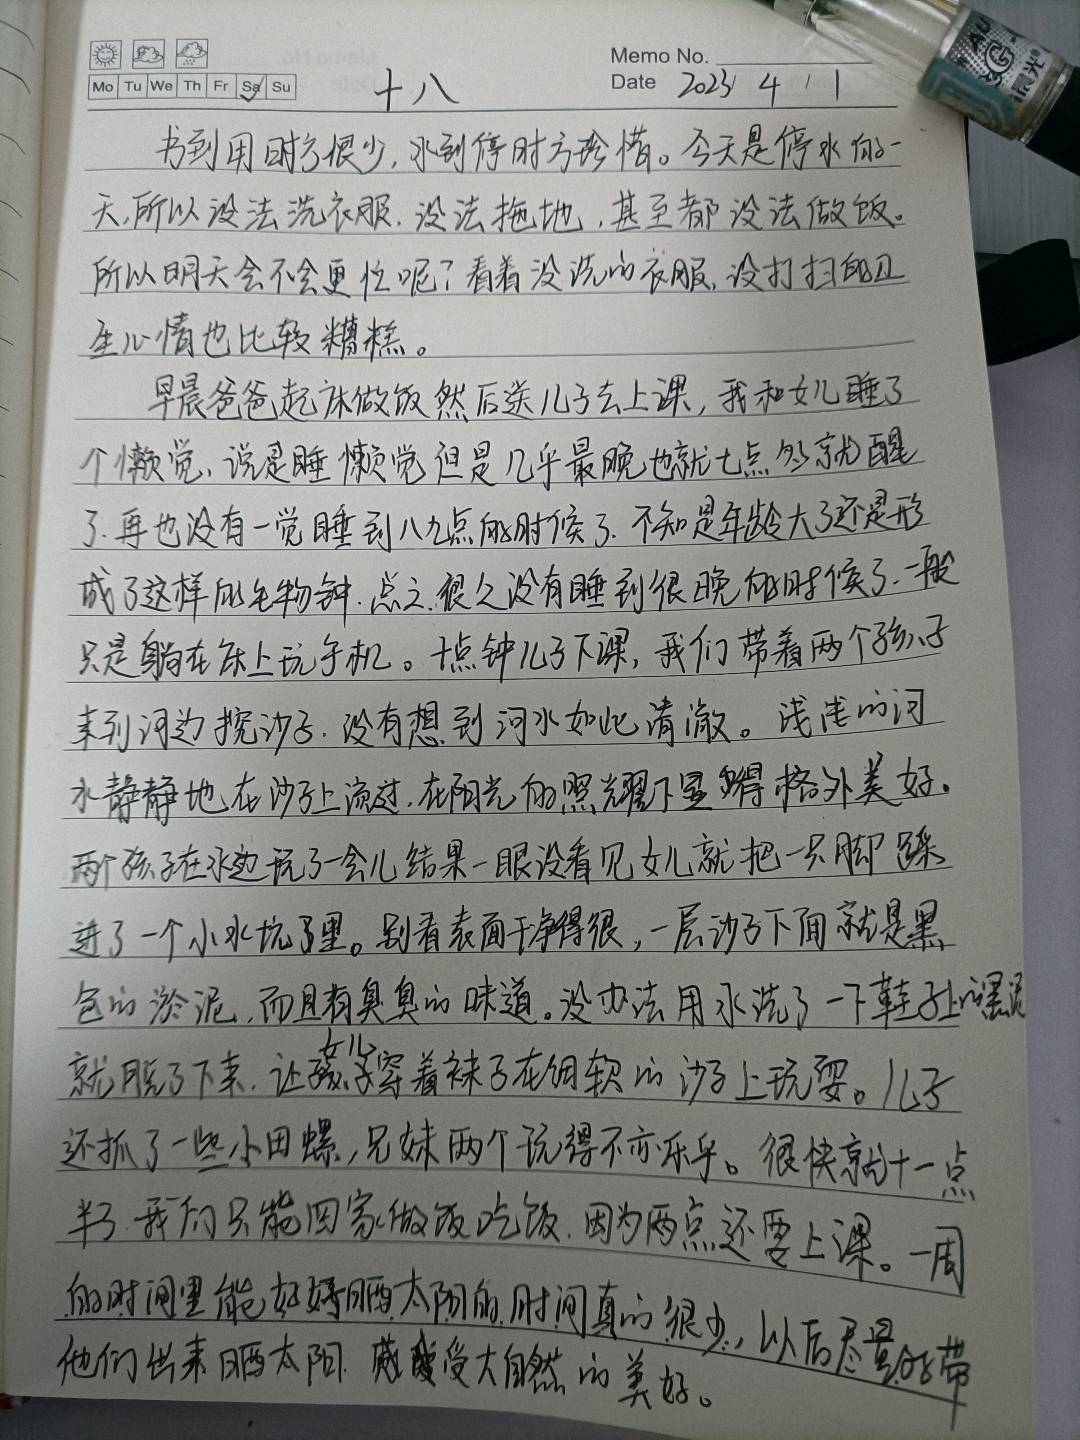 Memo No.
Mo Tu We Th Fr Sa Su
Date 2023 4 1
十八
书到用时方恨少，水到停时方珍惜。今天是停水的一
天，所以没法洗衣服，没法拖地，甚至都没法做饭。
所以明天会不会更忙呢？看着没洗的衣服，没打扫的卫
生心情也比较糟糕。
早晨爸爸起床做饭然后送儿子去上课，我和女儿睡了
个懒觉，说是睡懒觉但是几乎最晚也就七点多就醒
了，再也没有一觉睡到八九点的时候了，不知是年龄大了还是形
成了这样的生物钟，总之很久没有睡到很晚的时候了，一般
只是躺在床上玩手机。十点钟儿子下课，我们带着两个孩子
来到河边挖沙子，没有想到河水如此清澈。浅浅的河
水静静地在沙子上流过，在阳光的照耀下显得格外美好。
两个孩子在水边玩了一会儿结果一眼没看见女儿就把一只脚踩
进了一个小水坑里。别看表面干净得很，一层沙子下面就是黑
色的淤泥，而且有臭臭的味道。没办法用水洗了一下鞋子上的黑泥
就脱了下来，让女儿穿着袜子在细软的沙子上玩耍。儿子
还抓了一些小田螺，兄妹两个玩得不亦乐乎。很快就十一点
半了，我们只能回家做饭吃饭，因为两点还要上课。一周
的时间里能好好晒太阳的时间真的很少，以后尽量的带
他们出来晒太阳，感受大自然的美好。
AU
晨光